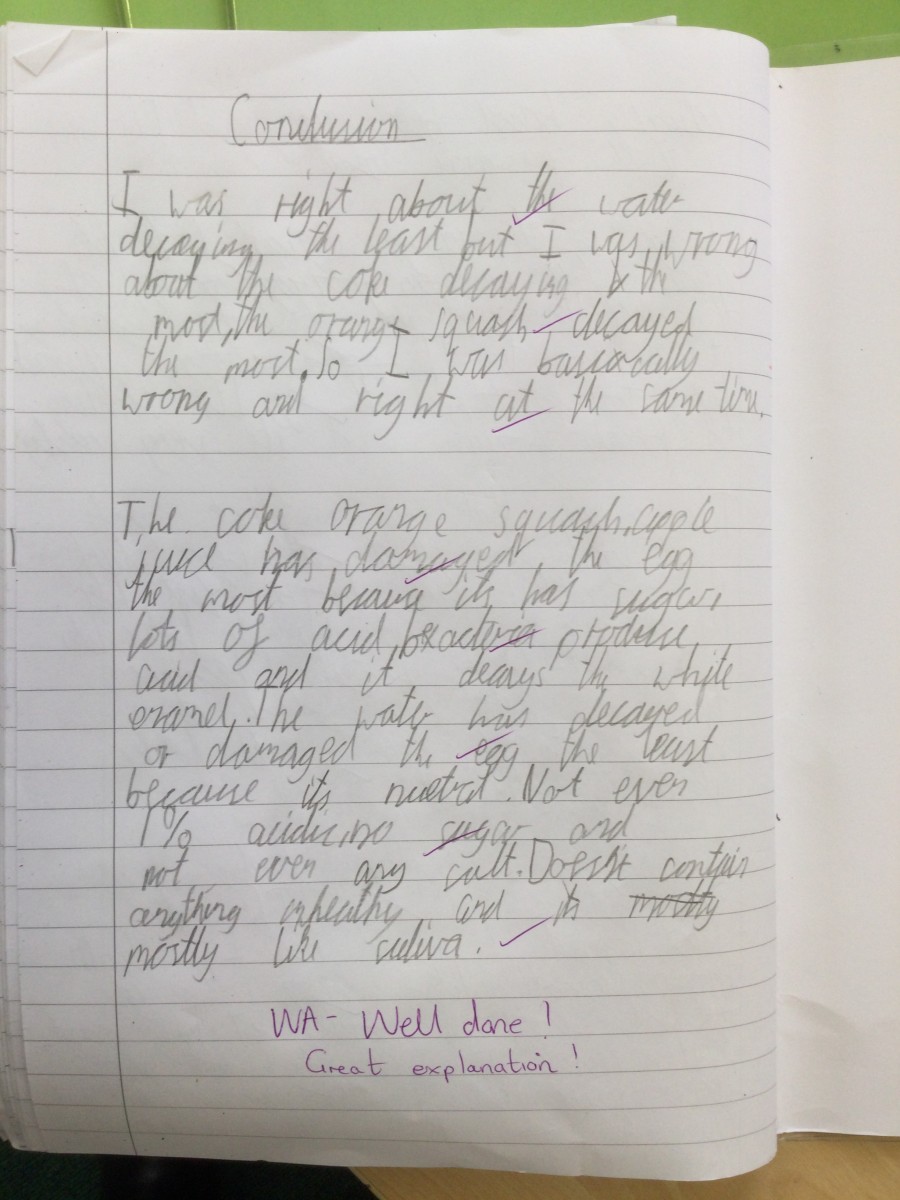 Conclusion
I was right about the water
decaying the least but I was wrong
about the coke decaying the
most, the orange squash decayed
the most. So I was basically
wrong and right at the same time.
The coke orange squash, apple
juice has damaged the egg
the most because its has sugar,
lots of acid, bacteria produce
acid and it decays the white
enamel. The water has decayed
or damaged the egg the least
because its nuetral. Not even
1% acidic, no sugar and
not even any salt. Doesn't contain
anything unhealthy and its mostly
mostly like saliva.
WA - Well done!
Great explanation!